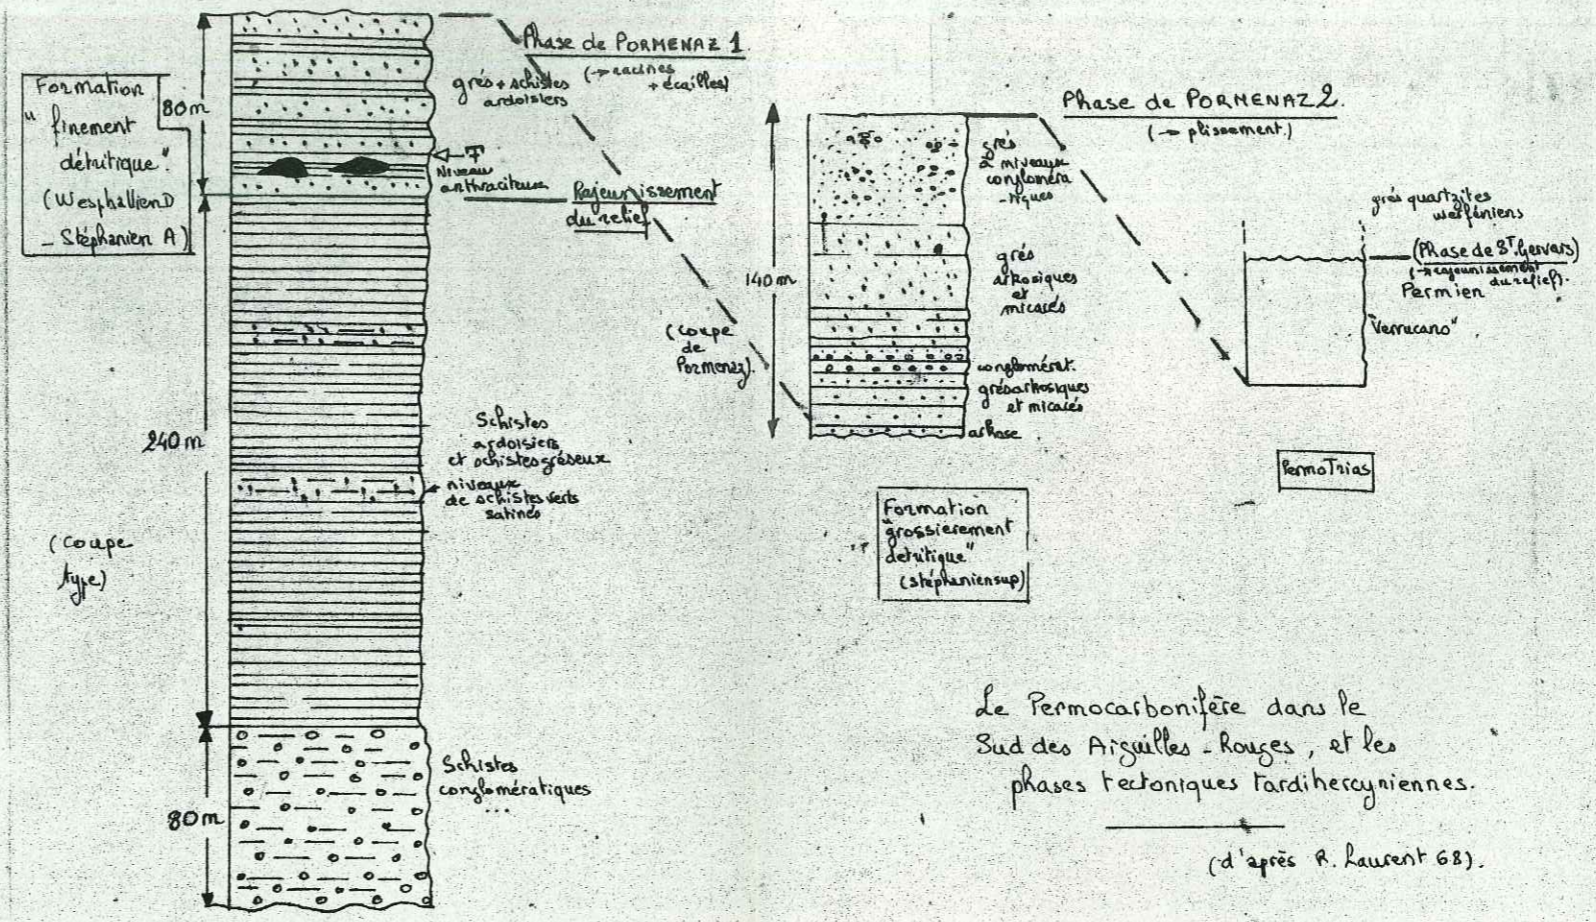 Formation
"finement
détritique"
(Wesphalien D
- Stéphanien A)
80m
240m
(coupe
type)
80m
Phase de PORMENAZ 1
(→ racines
+ écailles)
grés + schistes
ardoisiers
Niveau
anthraciteux
Rajeunissement
du relief
Schistes
ardoisiers
et schistes gréseux
niveaux
de schistes verts
satinés
Schistes
conglomératiques
...
(coupe
de
Pormenaz).
140m
Phase de PORMENAZ 2.
(→ plissement.)
grés
à niveaux
congloméra
-tiques
grés
arkosiques
et
micacés
conglomérat.
grés arkosiques
et micacés
arkose
Formation
"grossierement
detritique"
(stéphanien sup)
grés quartzites
werféniens
(Phase de St. Gervais)
(→ rajeunissement
du relief).
Permien
"Verrucano"
PermoTrias
Le Permocarbonifère dans le
Sud des Aiguilles-Rouges, et les
phases tectoniques tardihercyniennes.
(d'après R. Laurent 68).